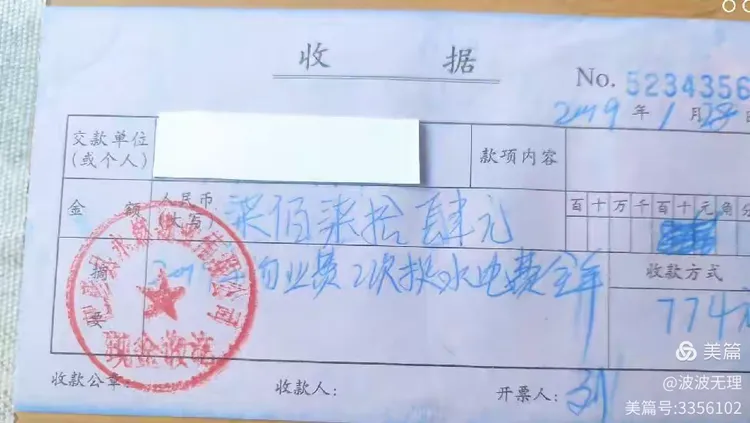 收 据
No. 5234356
2019 年 1 月 28 日
交款单位
(或个人)
款项内容
金 额
人民币
(大写)
柒佰柒拾肆元
百十万千百十元角分
摘
要
2019年物业费2次换水电费全年
收款方式
774
现金收讫
收款公章:
收款人:
开票人: 刘
美篇
@波波无理
美篇号:3356102